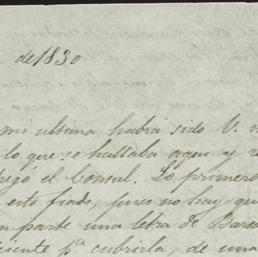 de 1830
mi ultima habrá sido V. m
lo que se hallaba aquy y r
regó el Consul. Lo primero
esto fiado, pues no hay qu
n parte una letra de Barce
iciente pa. cubrirla, de una